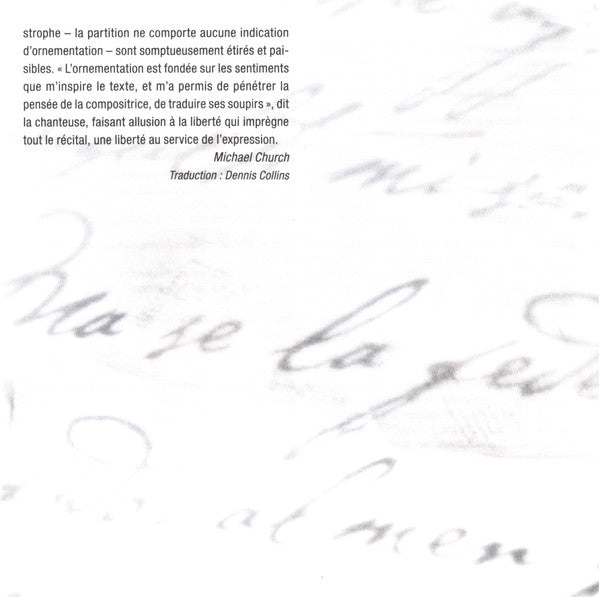 strophe – la partition ne comporte aucune indication
d'ornementation – sont somptueusement étirés et pai-
sibles. « L'ornementation est fondée sur les sentiments
que m'inspire le texte, et m'a permis de pénétrer la
pensée de la compositrice, de traduire ses soupirs », dit
la chanteuse, faisant allusion à la liberté qui imprègne
tout le récital, une liberté au service de l'expression.
Michael Church
Traduction : Dennis Collins
Ma se la fede
al men